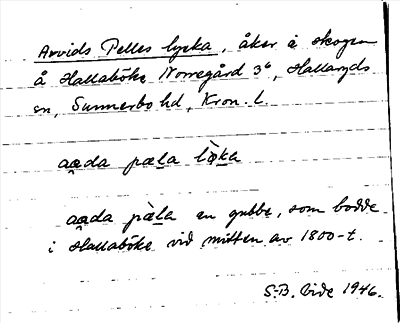 Arvids Pelles lycka, åker i skogen
å Hallaböke Norregård 3⁶, Hallaryds
sn, Sunnerbo hd, Kron. l.
aa̯da pæla lỳka
aa̯da pæ̀la en gubbe, som bodde
i Hallaböke vid mitten av 1800-t.
S.B. Vide 1946.